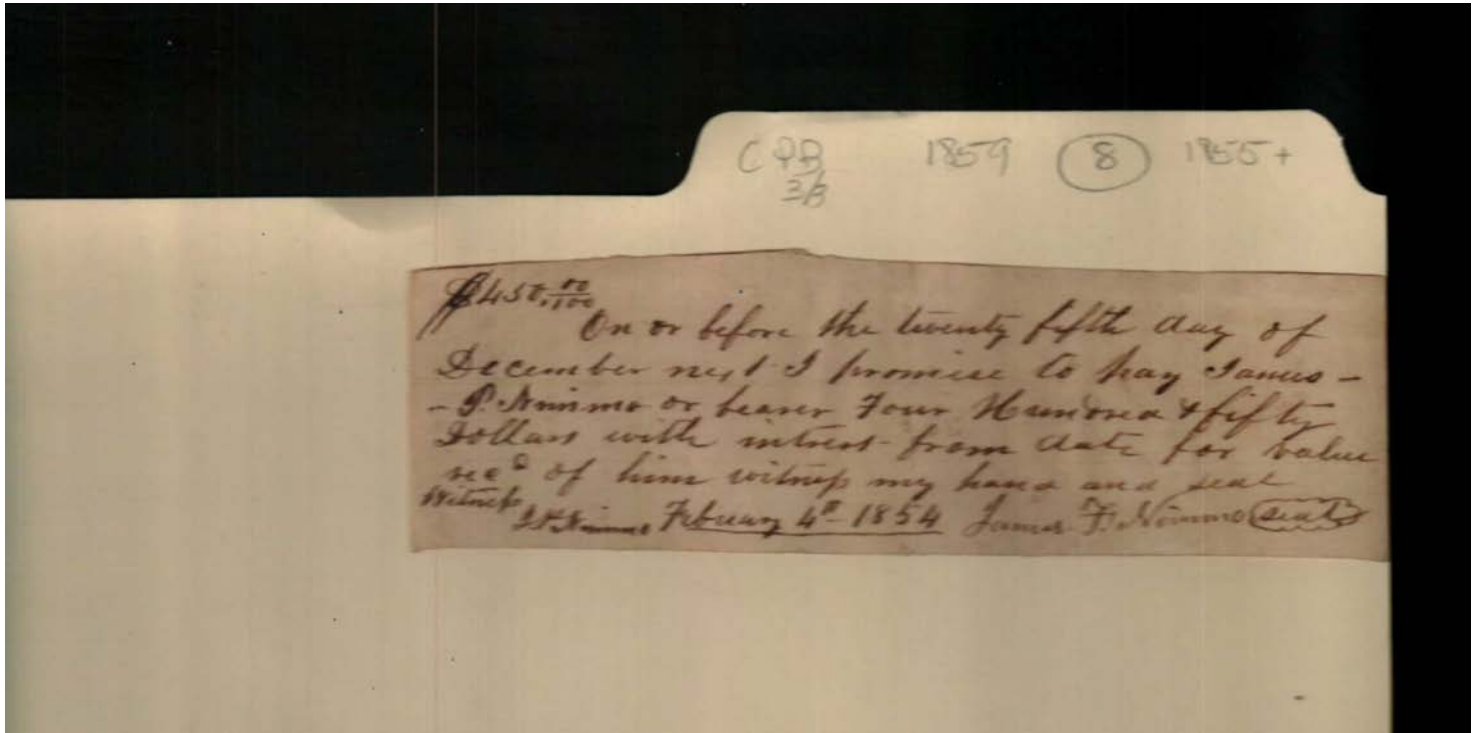 CPB 1859 8 1855+
3/3
$450.00/100
On or before the twenty fifth day of
December next I promise to pay James -
- P. Nimmo or bearer Four Hundred & fifty
Dollars with intrest from date for value
recd of him witness my hand and seal
Witness
Nimmo February 4th 1854 James F. Nimmo seal